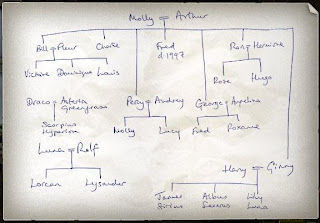 Molly Arthur
Bill Fleur Charlie Fred Ron Hermione
d.1997
Victoire Dominique Louis Rose Hugo
Draco Asteria Percy Audrey George Angelina
Greengrass
Scorpius
Hyperion Molly Lucy Fred Roxanne
Luna Rolf
Harry Ginny
Lorcan Lysander James Albus Lily
Sirius Severus Luna